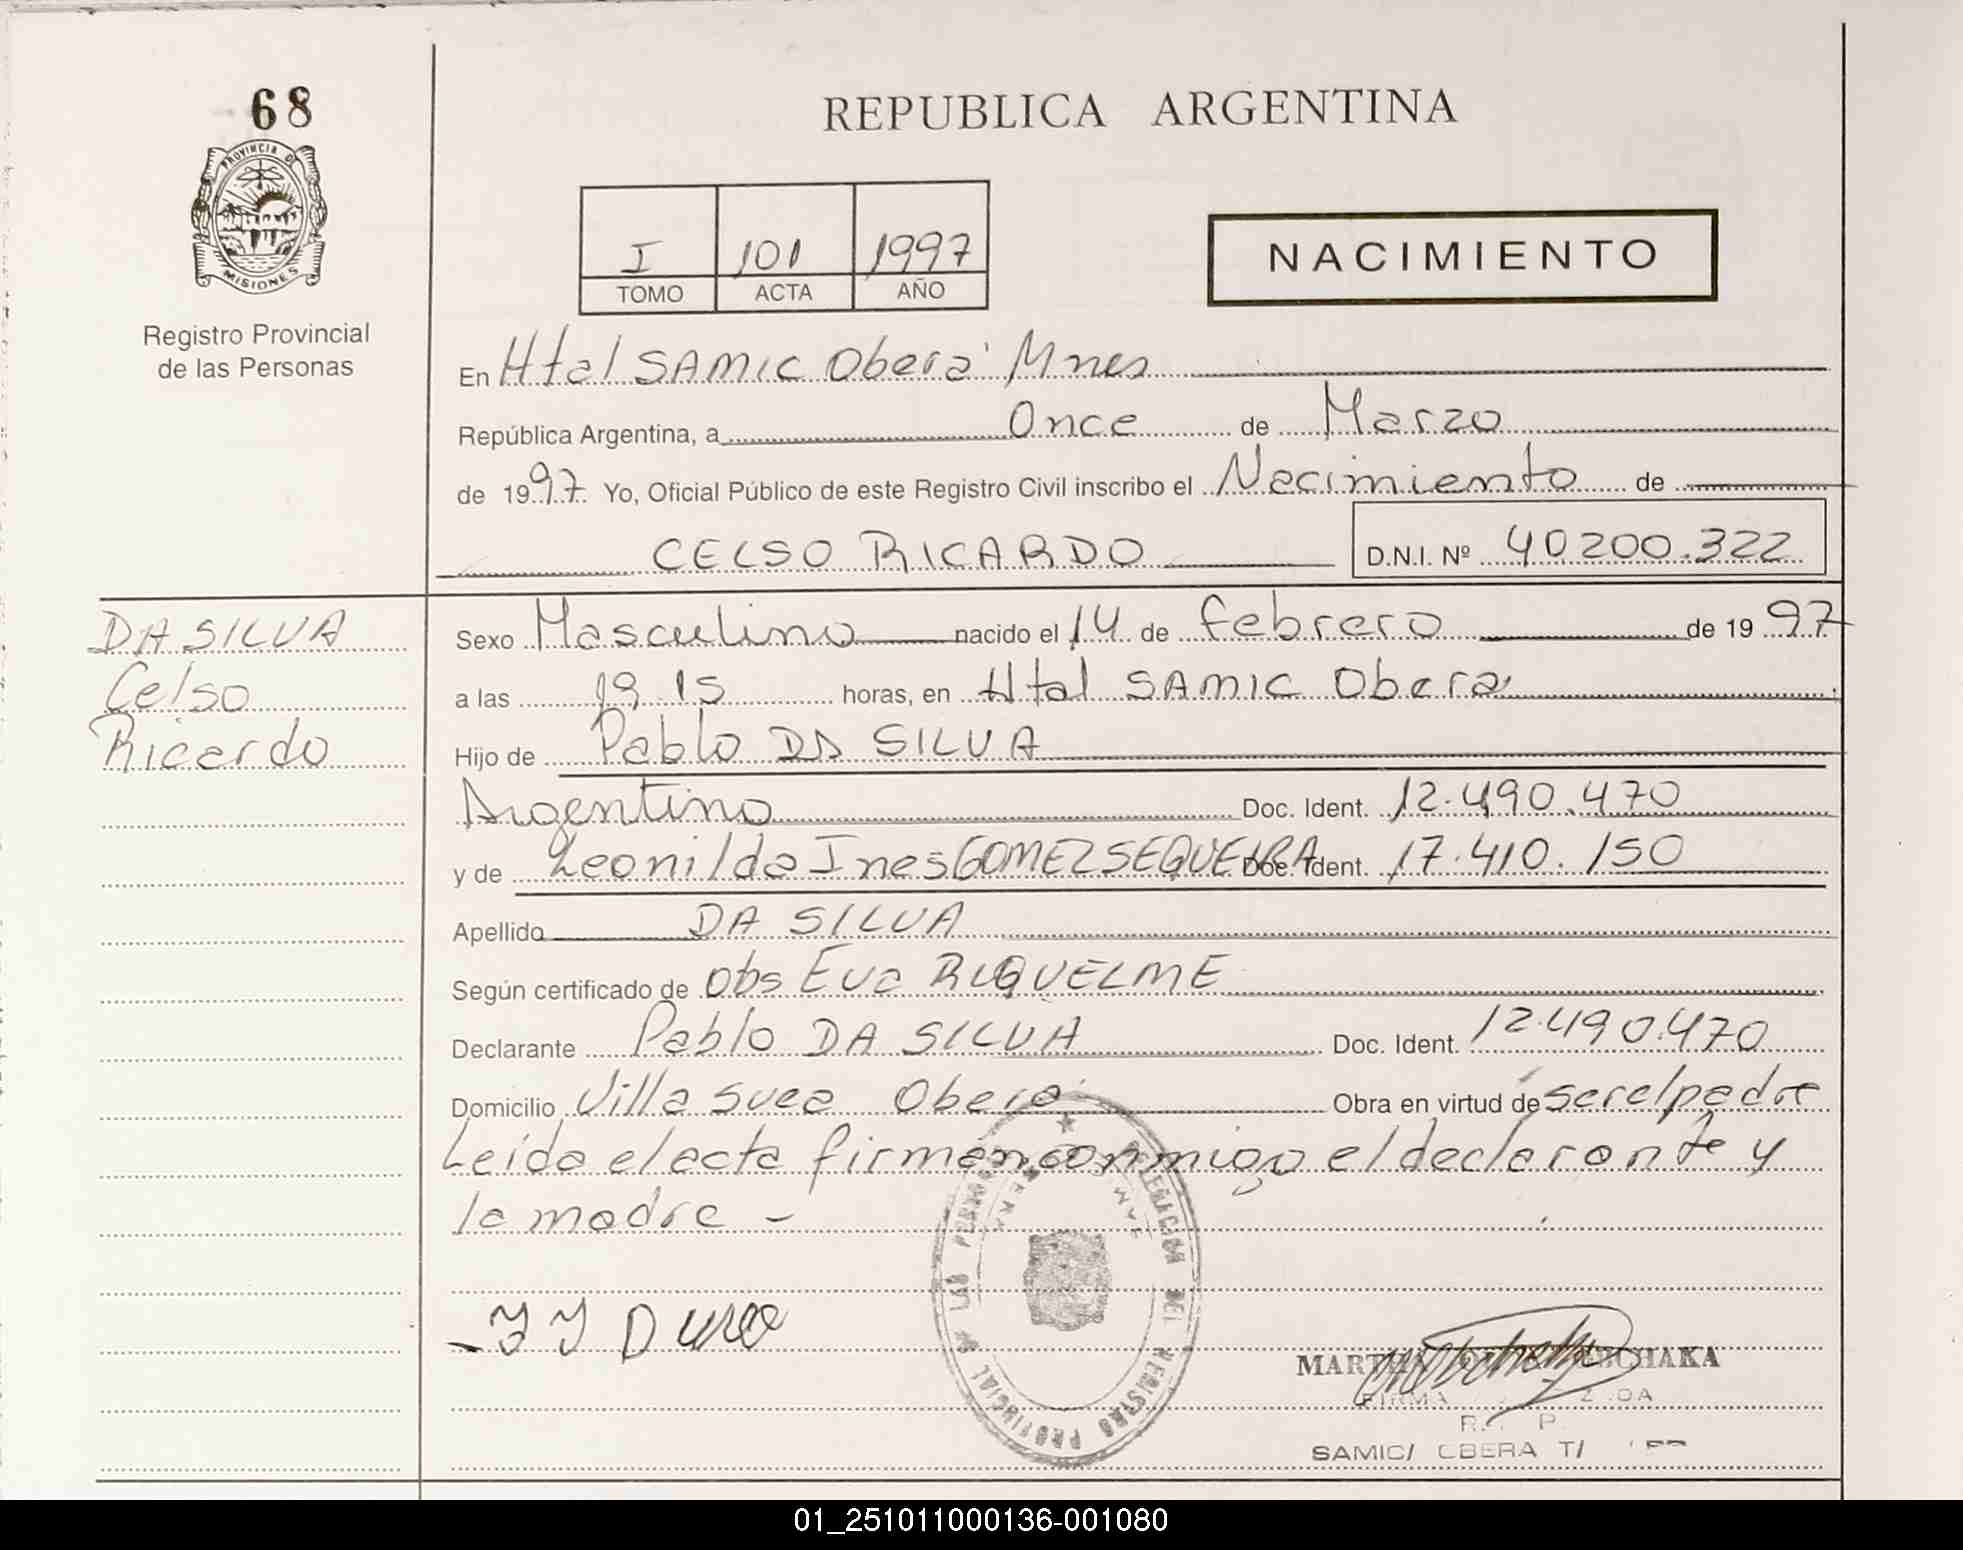 68
PROVINCIA D
MISIONES
Registro Provincial
de las Personas
REPUBLICA ARGENTINA
I 101 1997
TOMO ACTA AÑO
NACIMIENTO
En Htal SAMIC Oberá Mnes
República Argentina, a Once de Marzo
de 1997 Yo, Oficial Público de este Registro Civil inscribo el Nacimiento de
CELSO RICARDO D.N.I. Nº 40.200.322
DA SILVA
Celso
Ricardo
Sexo Masculino nacido el 14 de febrero de 1997
a las 19 15 horas, en Htal SAMIC Oberá
Hijo de Pablo DA SILVA
Argentino Doc. Ident. 12.490.470
y de Leonilda Ines GOMEZ SEQUEIRA Doc. Ident. 17.410.150
Apellido DA SILVA
Según certificado de Obs Eva RIQUELME
Declarante Pablo DA SILVA Doc. Ident. 12.490.470
Domicilio Villa Svea Oberá Obra en virtud de ser el padre
Leída el acta firman conmigo el declarante y
la madre -
DELEGACION DEL REGISTRO PROVINCIAL DE LAS PERSONAS
SAMIC/ OBERA
01_251011000136-001080